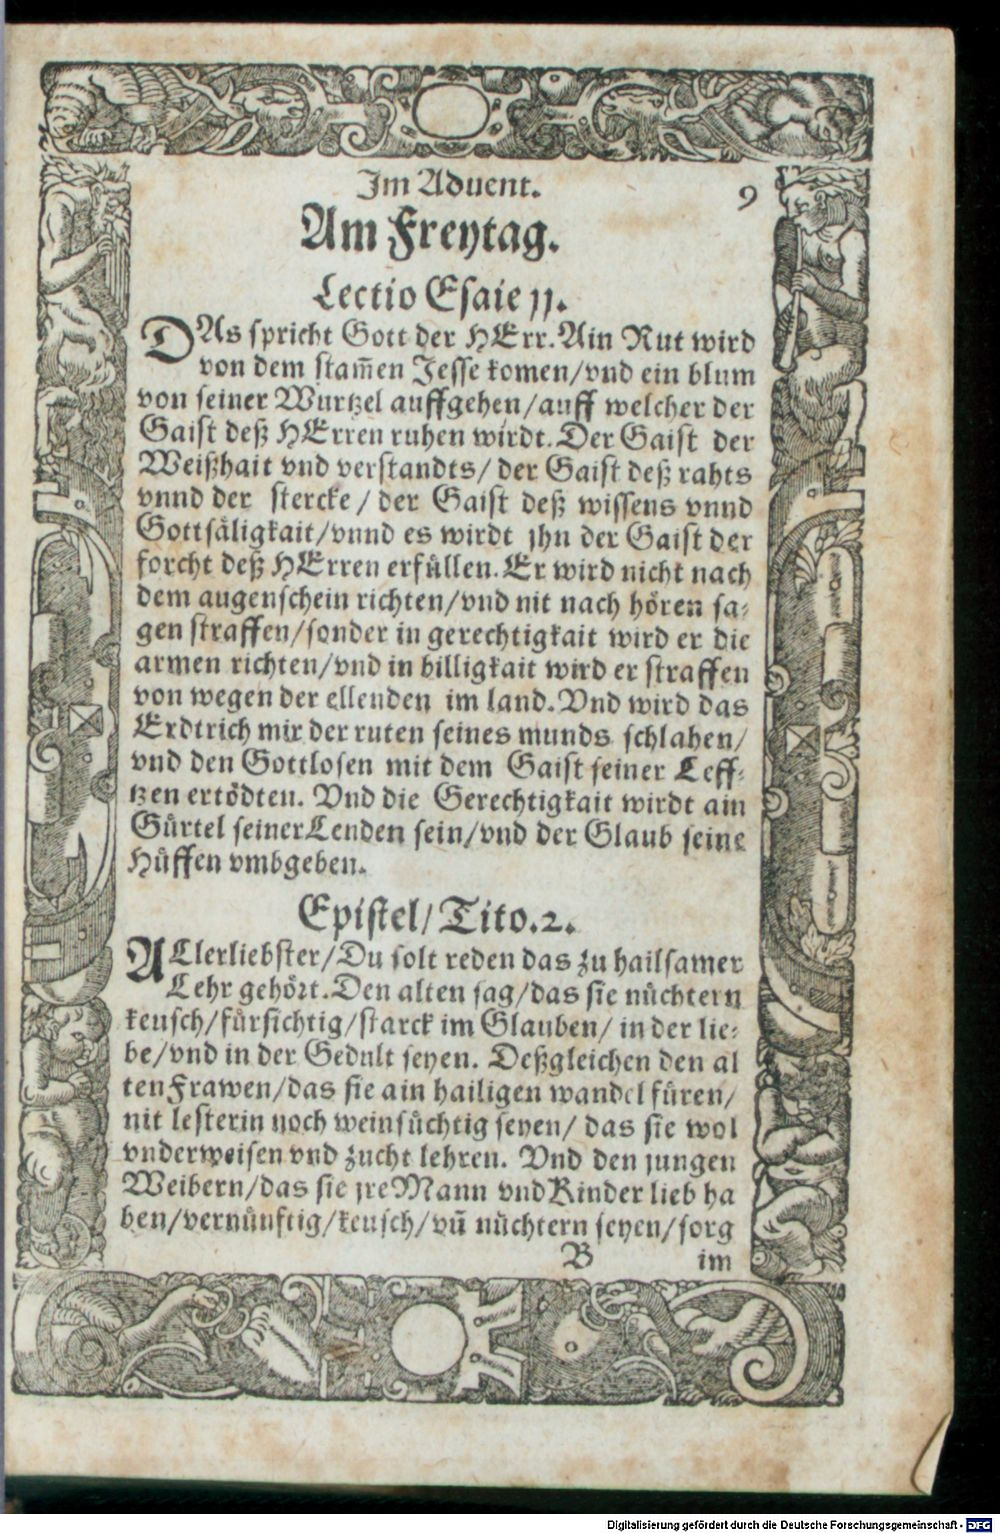 Im Aduent.
9
Am Freytag.
Lectio Esaie 11.
DAs spricht Gott der HErr. Ain Rut wird
von dem stam̃en Jesse komen/vnd ein blum
von seiner Wurtzel auffgehen/auff welcher der
Gaist deß HErren ruhen wirdt. Der Gaist der
Weißhait vnd verstandts/ der Gaist deß rahts
vnnd der stercke/ der Gaist deß wissens vnnd
Gottsäligkait/vnnd es wirdt jhn der Gaist der
forcht deß HErren erfüllen. Er wird nicht nach
dem augenschein richten/vnd nit nach hören sa-
gen straffen/sonder in gerechtigkait wird er die
armen richten/vnd in billigkait wird er straffen
von wegen der ellenden im land. Vnd wird das
Erdtrich mir der ruten seines munds schlahen/
vnd den Gottlosen mit dem Gaist seiner Leff-
tzen ertödten. Vnd die Gerechtigkait wirdt ain
Gürtel seiner Lenden sein/vnd der Glaub seine
Hüffen vmbgeben.
Epistel/Tito.2.
ALlerliebster/Du solt reden das zu hailsamer
Lehr gehört. Den alten sag/das sie nüchtern
keusch/fürsichtig/starck im Glauben/ in der lie-
be/vnd in der Gedult seyen. Deßgleichen den al
ten Frawen/das sie ain hailigen wandel füren/
nit lesterin noch weinsüchtig seyen/ das sie wol
vnderweisen vnd zucht lehren. Vnd den jungen
Weibern/das sie jre Mann vnd Kinder lieb ha
ben/vernünftig/keusch/vñ nüchtern seyen/sorg
B im
Digitalisierung gefördert durch die Deutsche Forschungsgemeinschaft - DFG